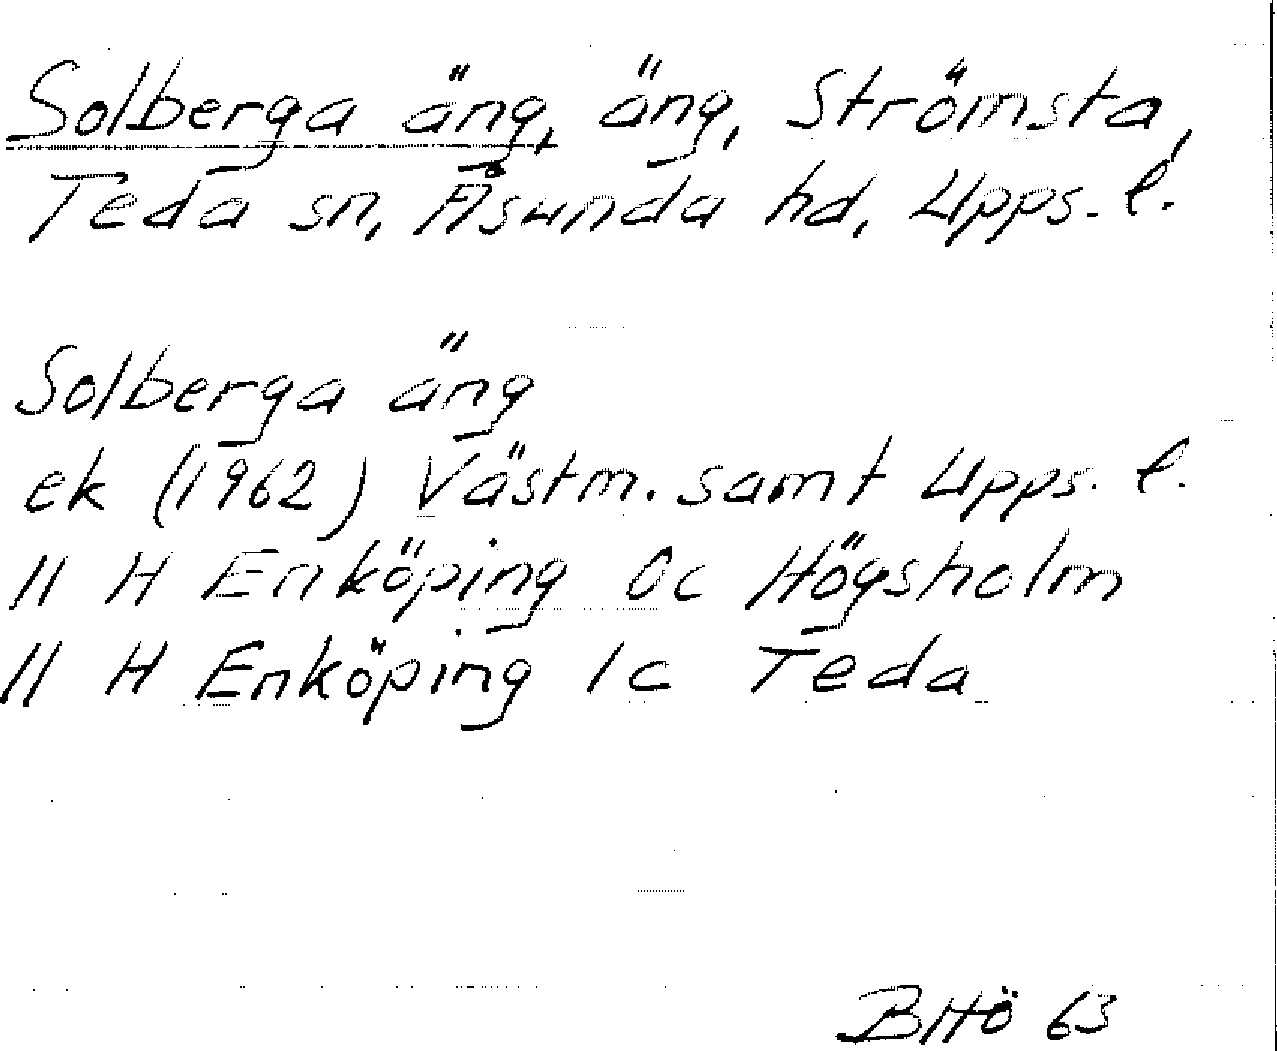 Solberga äng, äng, Strömsta,
Teda sn, Åsunda hd, Upps. l.
Solberga äng
ek (1962) Västm. samt Upps. l.
11 H Enköping 0c Högsholm
11 H Enköping 1c Teda
BHö 63